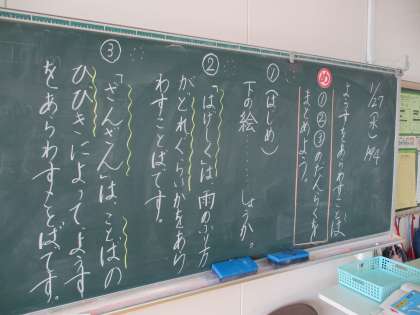 1/27 (水) M4
ようすをあらわすことば
め ①②③のだんらくを
まとめよう。
① (はじめ)
下の絵……しょうか。
② 「はげしく」は、雨のふり方
がどれくらいかをあら
わすことばです。
③ 「ざんざん」は、ことばの
ひびきによって、ようす
をあらわすことばです。